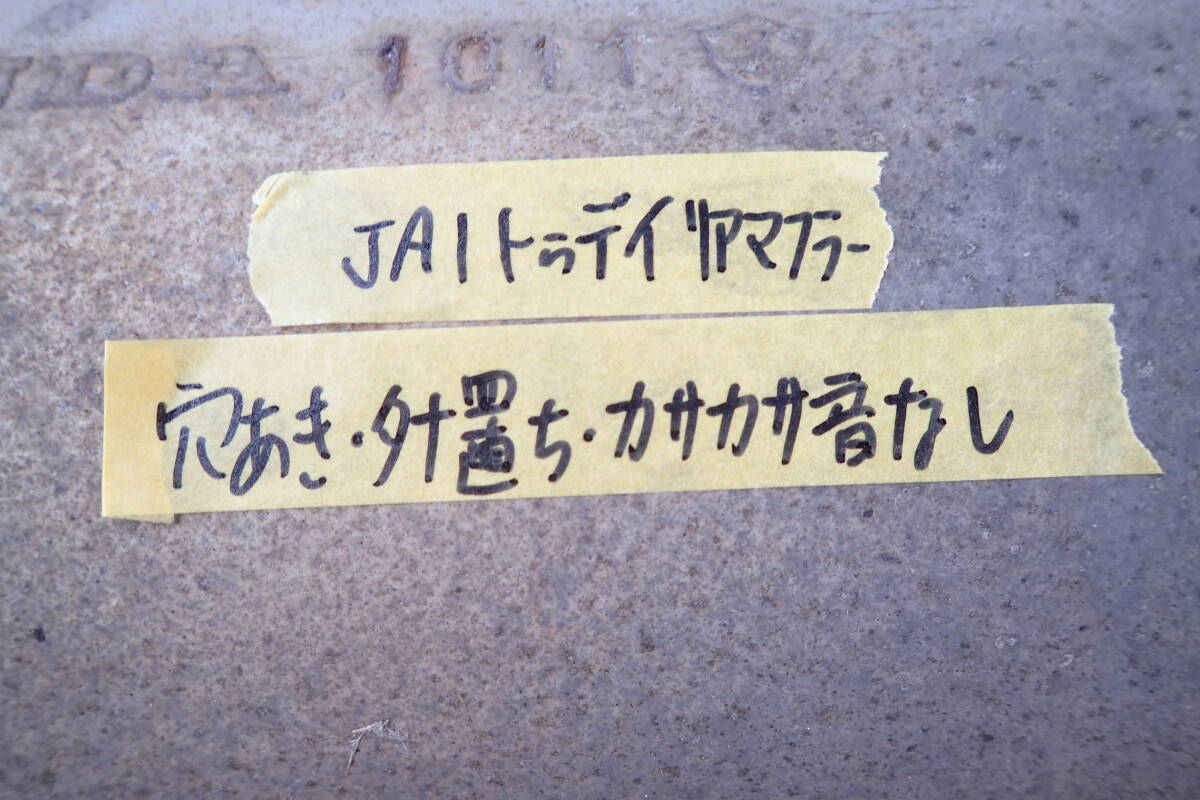 1011
JA1トゥデイ リアマフラー
穴あき・外置ち・カサカサ音なし